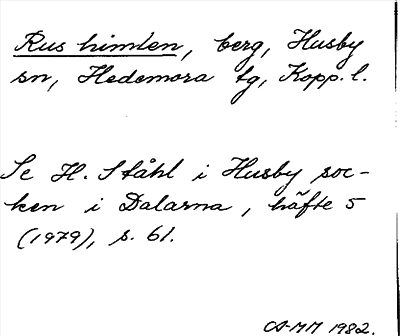 Rus himlen, berg, Husby
sn, Hedemora tg, Kopp. l.
Se H. Ståhl i Husby soc-
ken i Dalarna, häfte 5
(1979), s. 61.
CS-MM 1982.